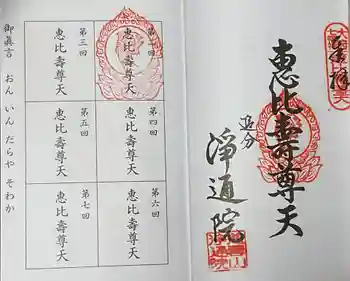 奉拝
恵比壽尊天
追分
淨通院
第二回
恵比壽尊天
第三回
恵比壽尊天
第四回
恵比壽尊天
第五回
恵比壽尊天
第六回
恵比壽尊天
第七回
恵比壽尊天
御眞言　おん　いん　だらや　そわか